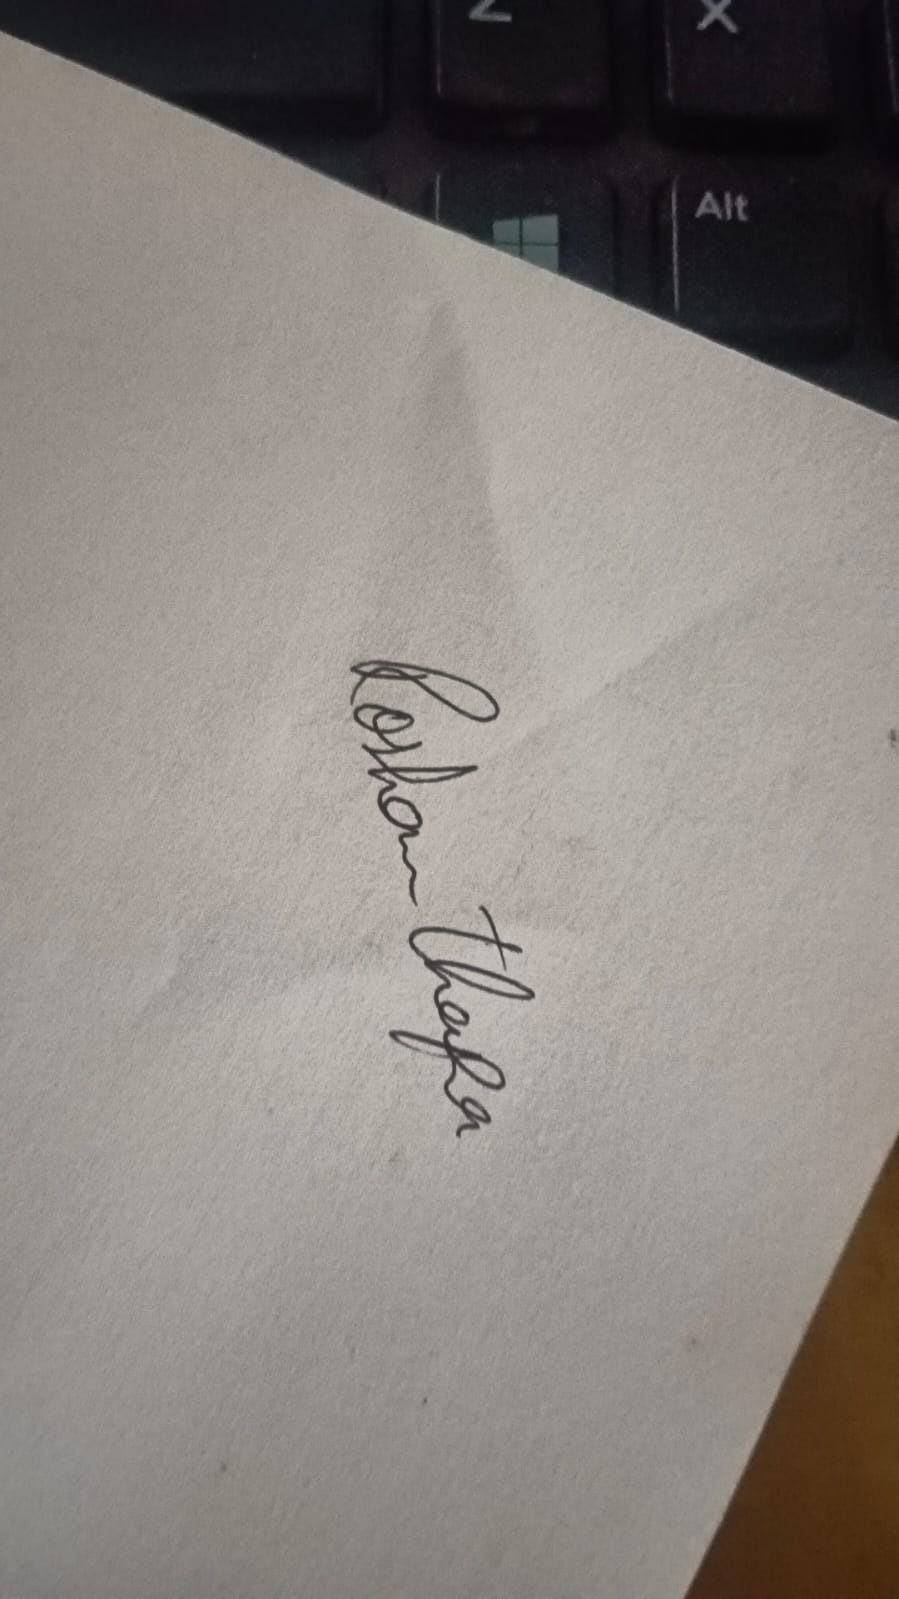 Z X
Alt
Roshan Thapa